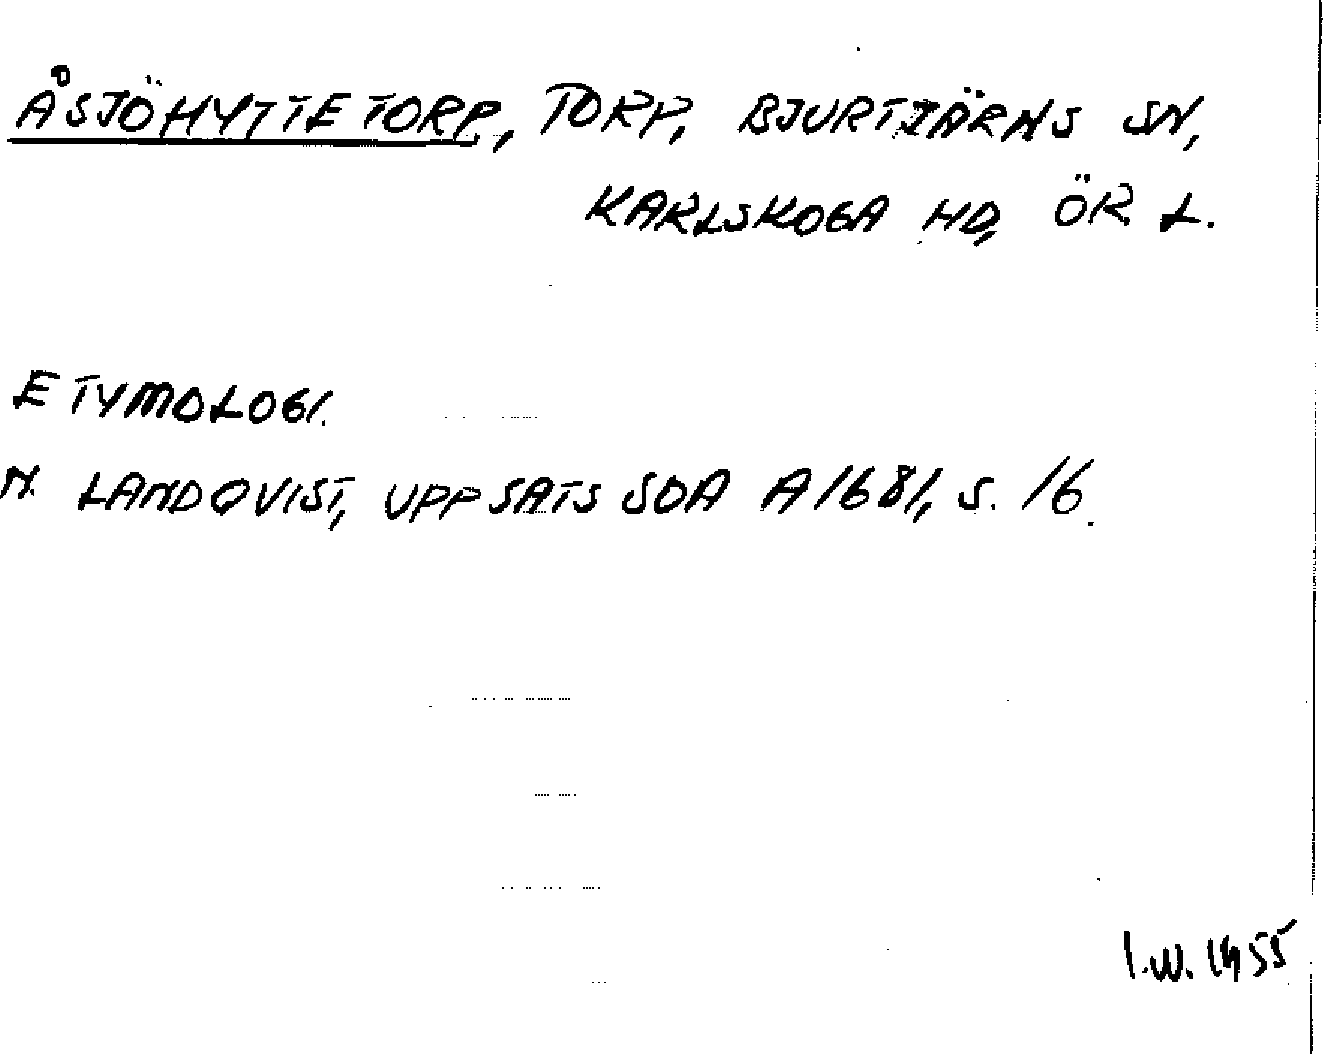 ÅSJÖHYTTETORP, TORP, BJURTJÄRNS SN,
KARLSKOGA HD, ÖR L.
ETYMOLOGI.
N. LANDQVIST, UPPSATS SOA A1681, S. 16.
I.W. 1955